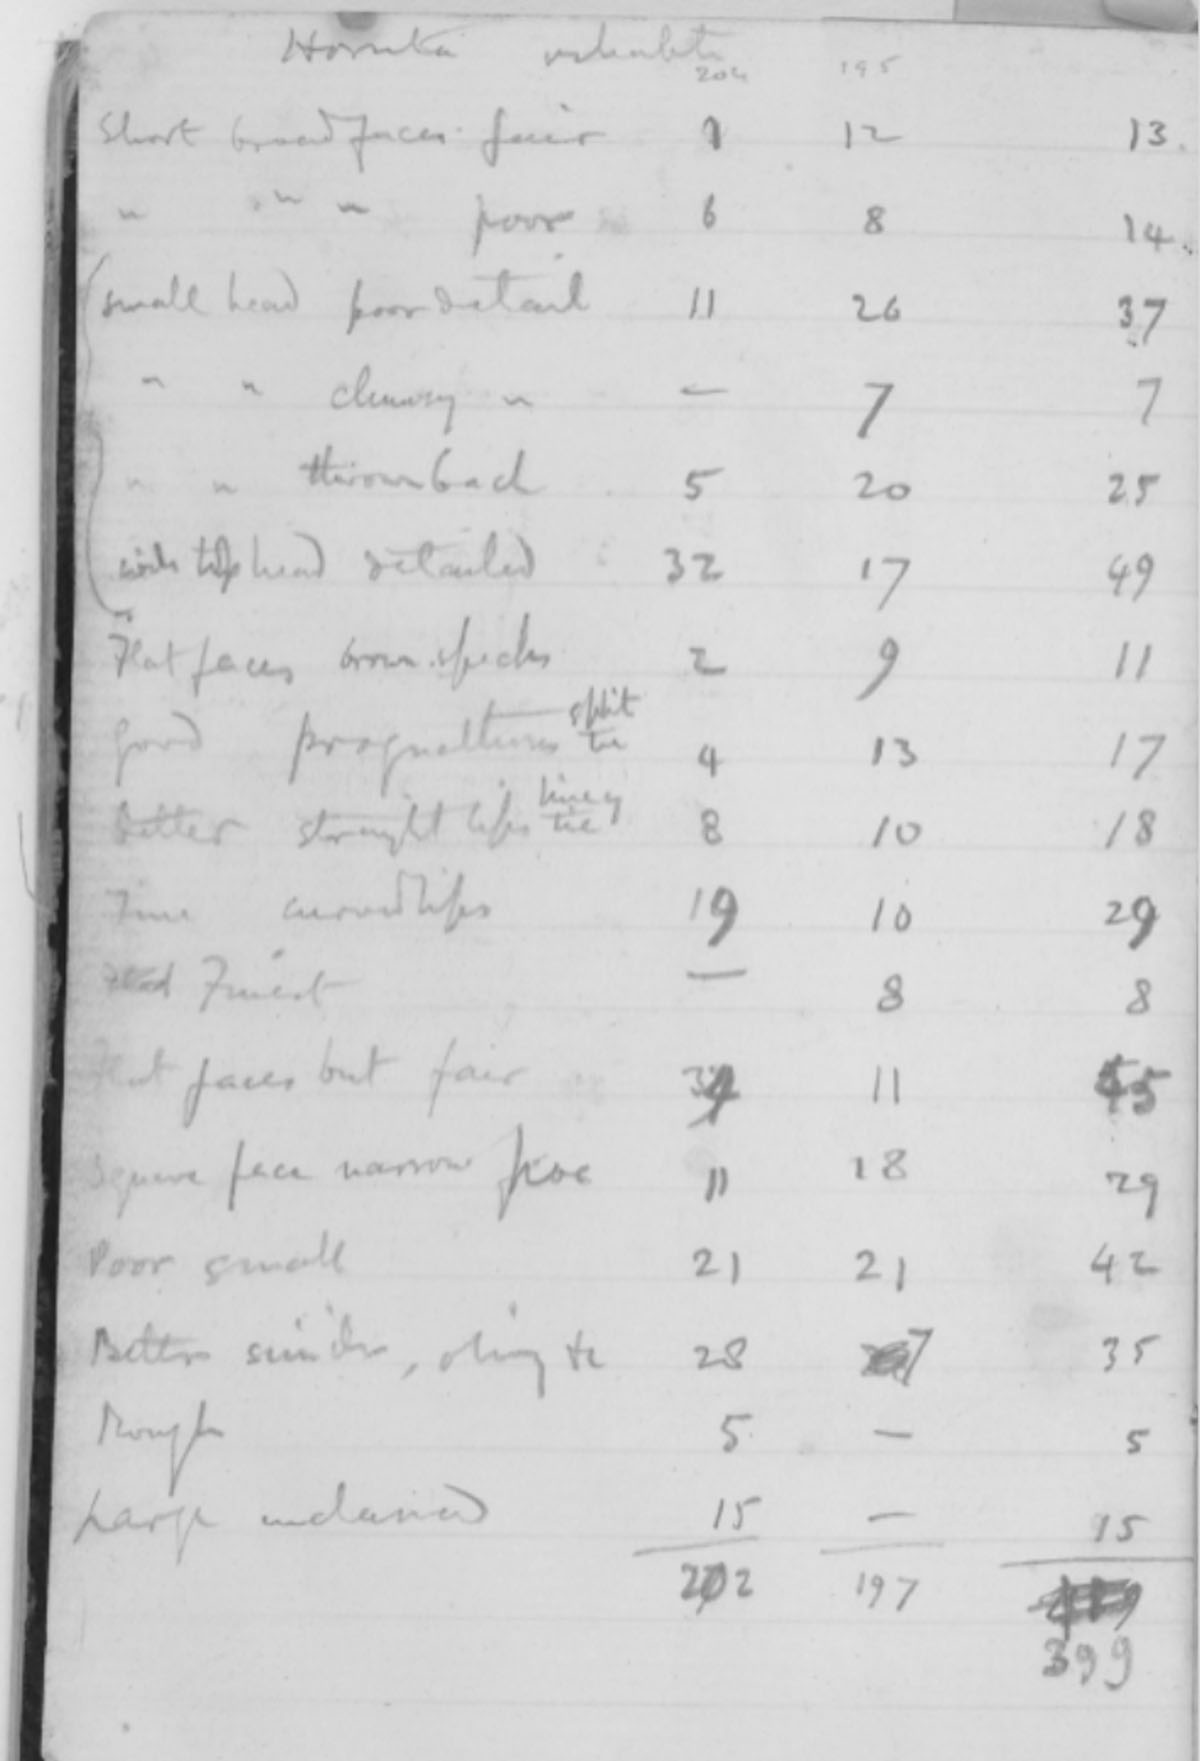 204 195
Short broad faces fair 1 12 13.
" " " poor 6 8 14.
small head poor detail 11 26 37
" " clumsy " — 7 7
" " thrown back 5 20 25
head detailed 32 17 49
Flat faces brown specks 2 9 11
split
Good prognathous 4 13 17
Better straight lips 8 10 18
Fine curved lips 19 10 29
Finest — 8 8
Flat faces but fair 34 11 45
Square face narrow 11 18 29
Poor small 21 21 42
Better 28 7 35
Rough 5 — 5
Large unclassed 15 — 15
202 197
399